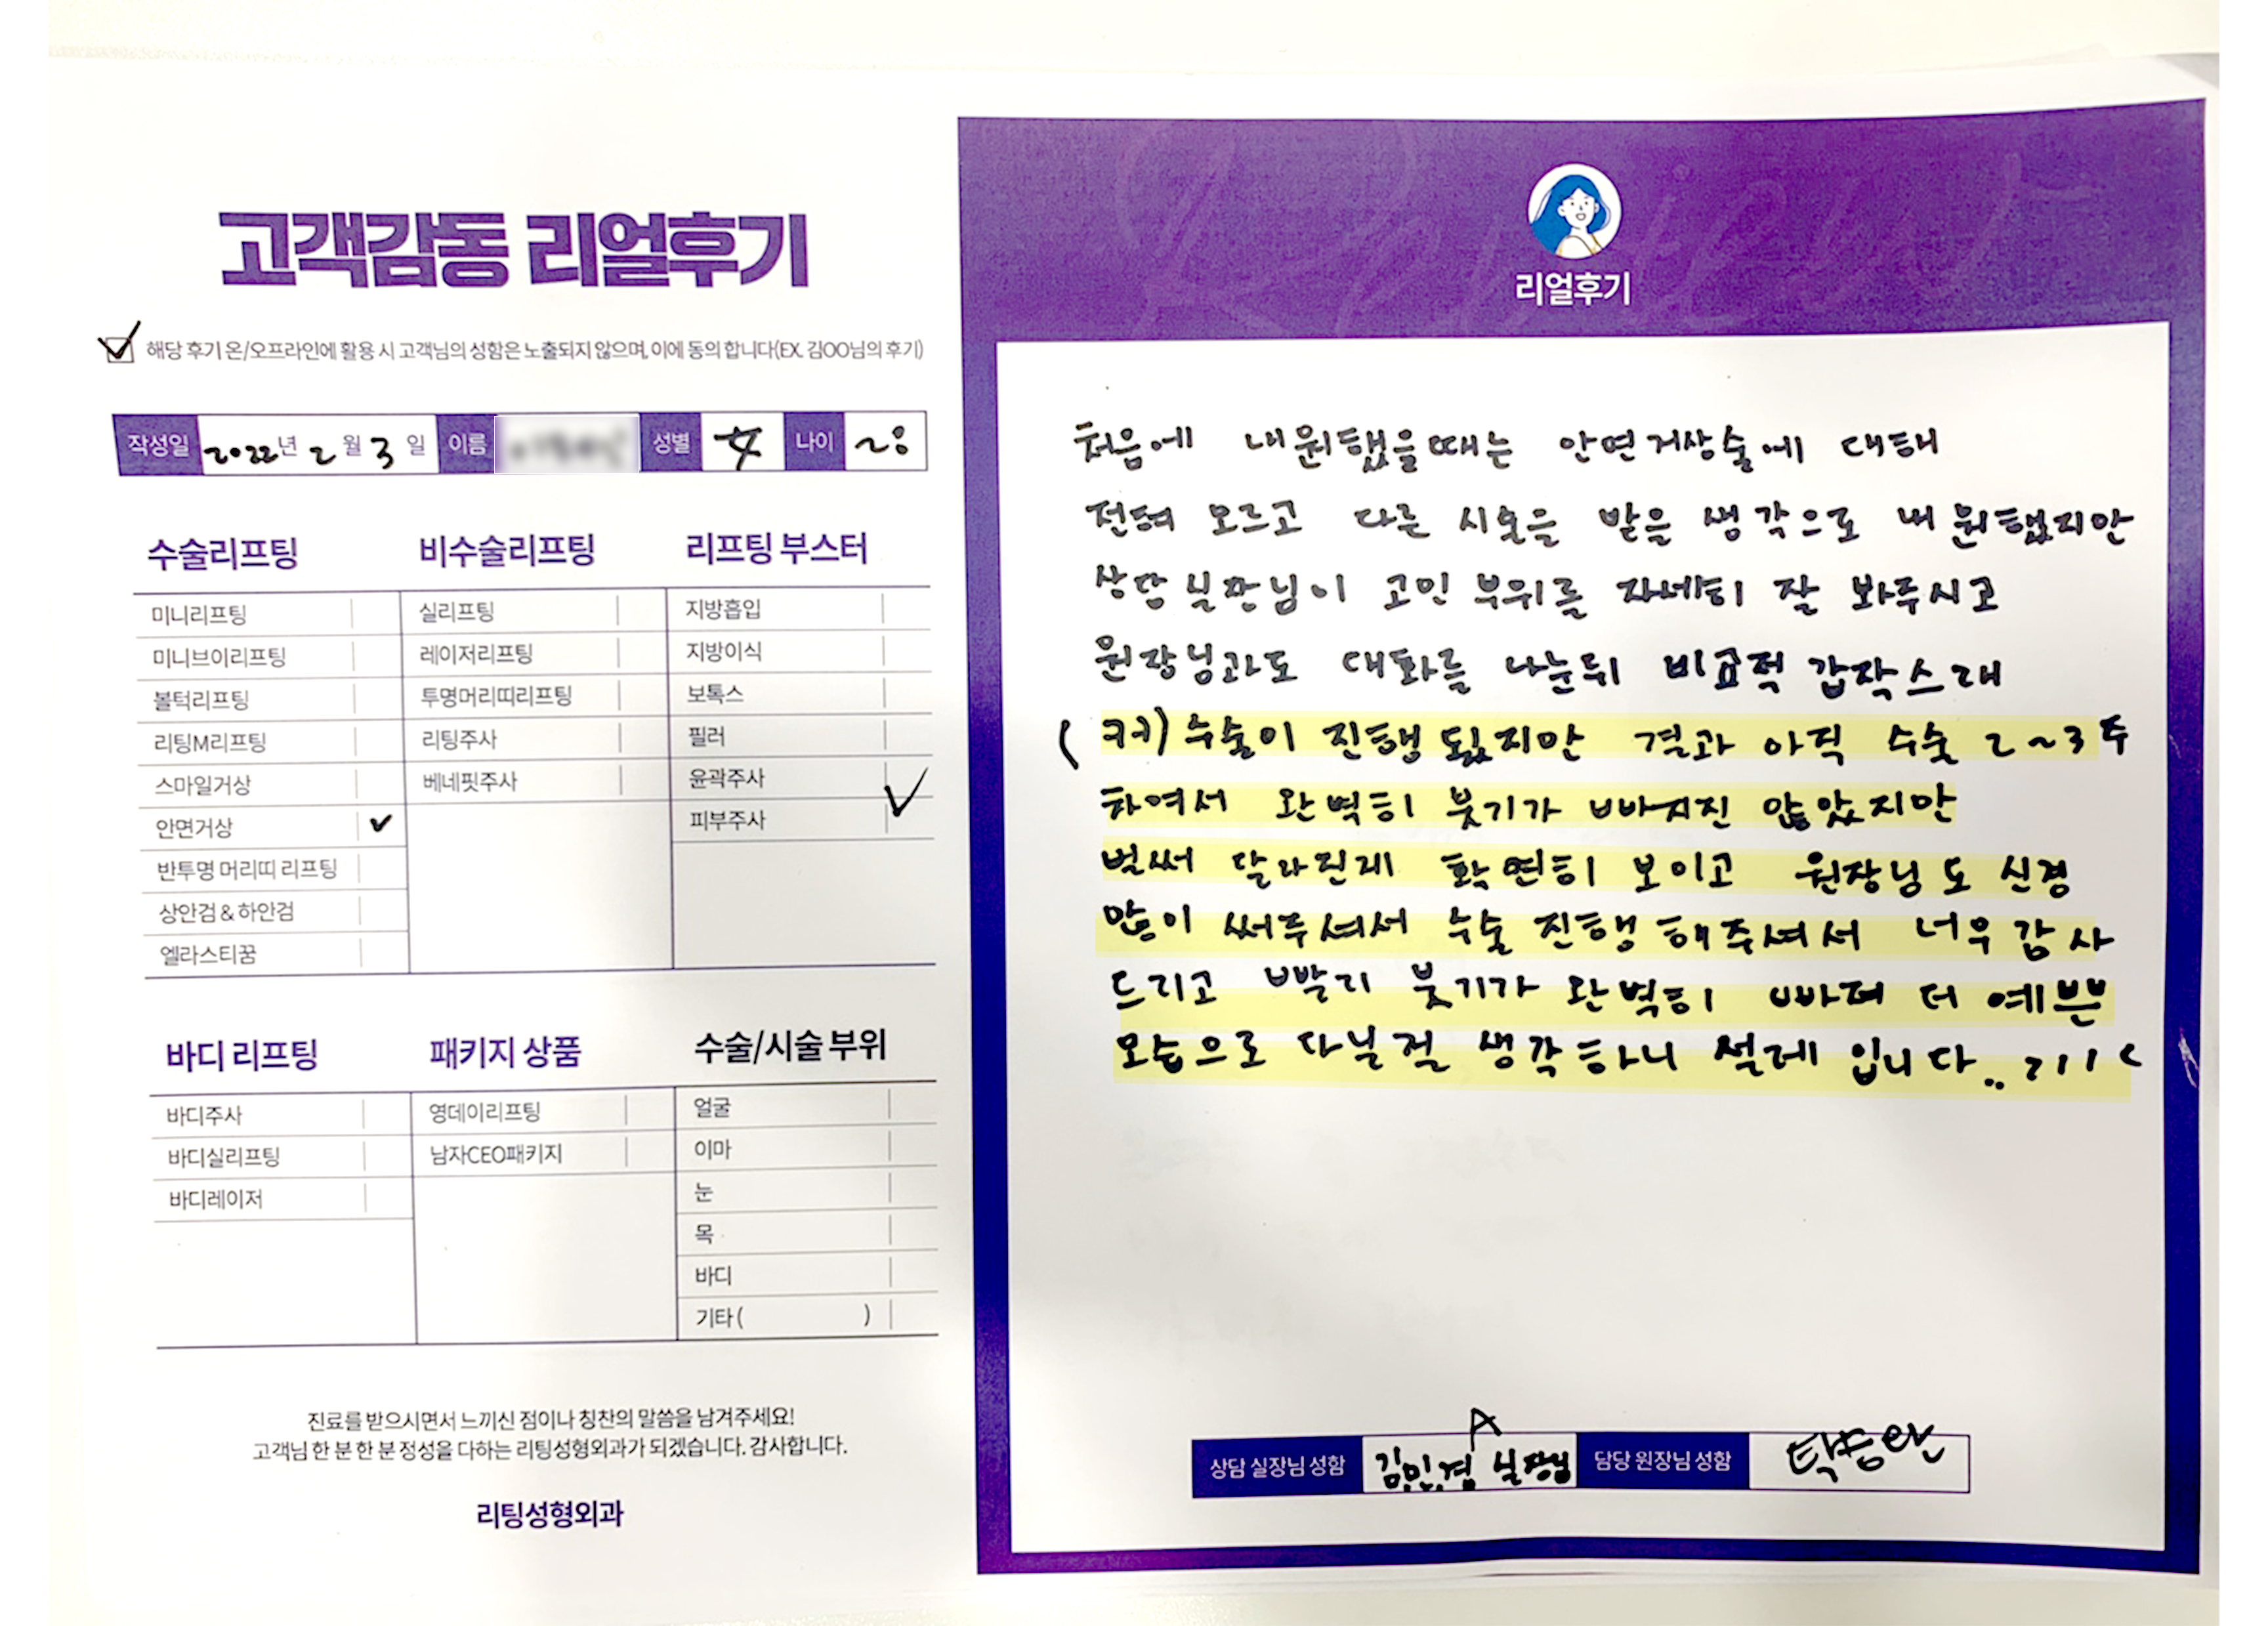 고객감동 리얼후기
해당 후기 온/오프라인에 활용 시 고객님의 성함은 노출되지 않으며, 이에 동의 합니다(EX. 김OO님의 후기)
작성일 2022년 2월 3일 이름 성별 女 나이
수술리프팅
미니리프팅
미니브이리프팅
볼턱리프팅
리팅M리프팅
스마일거상
안면거상
반투명 머리띠 리프팅
상안검 & 하안검
엘라스티꿈
비수술리프팅
실리프팅
레이저리프팅
투명머리띠리프팅
리팅주사
베네핏주사
리프팅 부스터
지방흡입
지방이식
보톡스
필러
윤곽주사
피부주사
바디 리프팅
바디주사
바디실리프팅
바디레이저
패키지 상품
영데이리프팅
남자CEO패키지
수술/시술 부위
얼굴
이마
눈
목
바디
기타 ( )
진료를 받으시면서 느끼신 점이나 칭찬의 말씀을 남겨주세요!
고객님 한 분 한 분 정성을 다하는 리팅성형외과가 되겠습니다. 감사합니다.
리팅성형외과
리얼후기
처음에 내원했을때는 안면거상술에 대해
전혀 모르고 다른 시술을 받을 생각으로 내원했지만
상담실장님이 고민 부위를 자세히 잘 봐주시고
원장님과도 대화를 나눈뒤 비교적 갑작스래
(ㅋㅋ) 수술이 진행 됐지만 결과 아직 수술 2~3주
차여서 완벽히 붓기가 빠지진 않았지만
벌써 달라진게 확연히 보이고 원장님도 신경
많이 써주셔서 수술 진행 해주셔서 너무 감사
드리고 빨리 붓기가 완벽히 빠져 더 예쁜
모습으로 다닐걸 생각하니 설레 입니다..
상담 실장님 성함 김민경 실장님 담당 원장님 성함